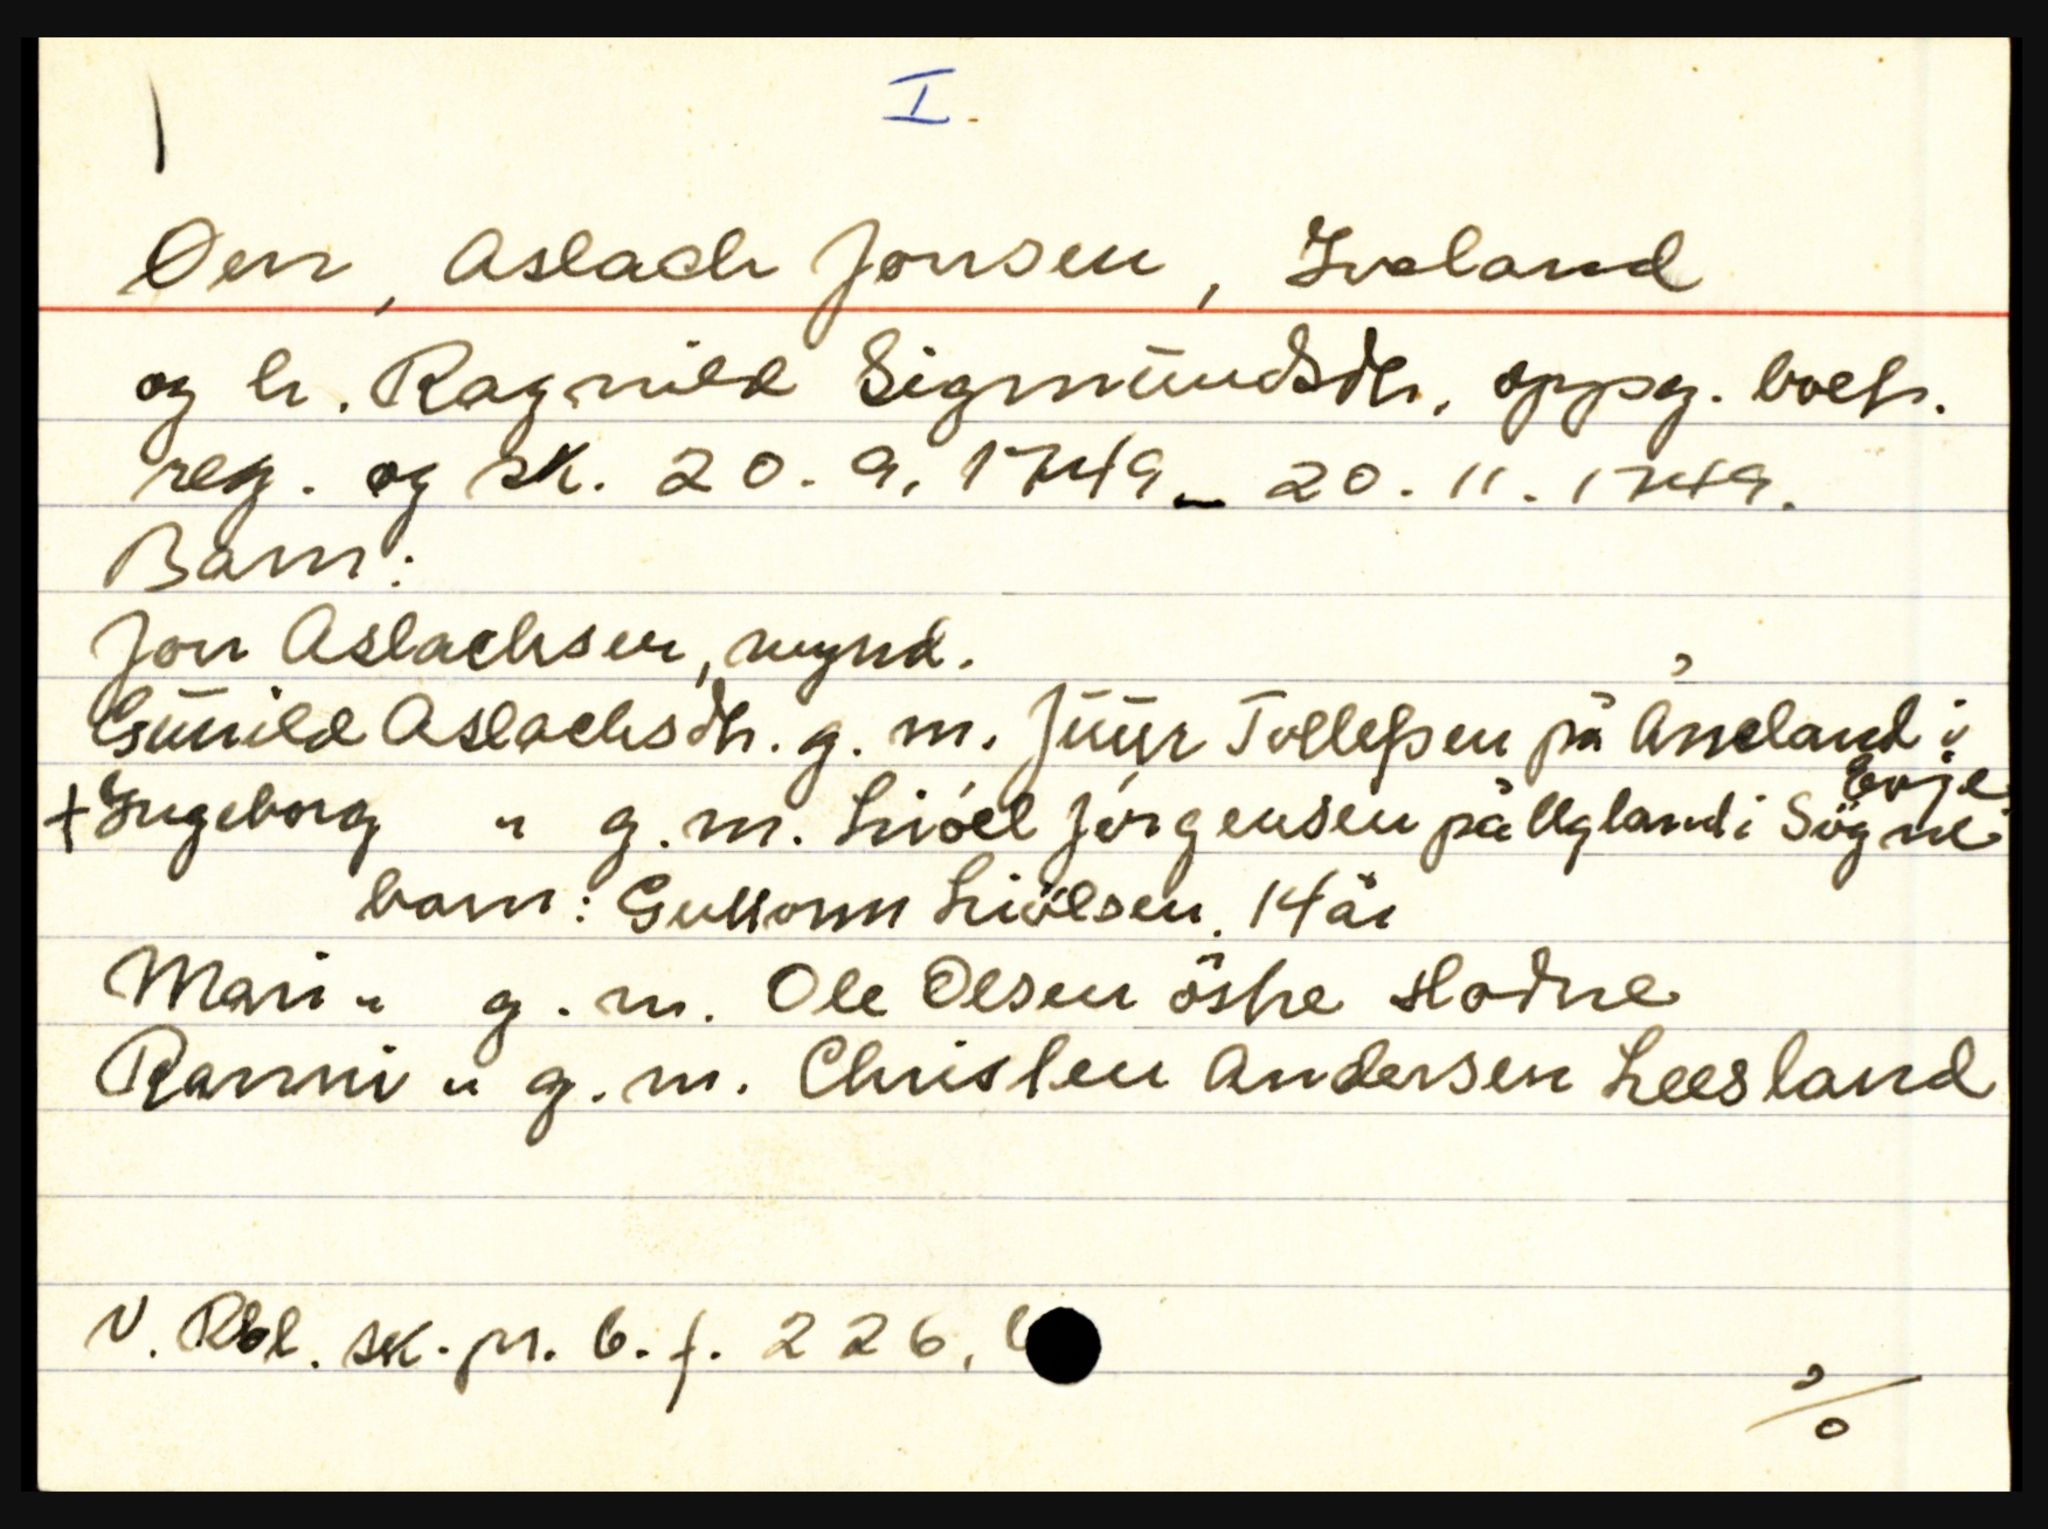 I.
Øen, Aslach Jonsen, Iveland
og h. Ragnild Sigmūndsdtr, oppg. boet.
reg. og sk. 20.9.1749 - 20.11.1749.
Barn:
Jon Aslachsen, mynd.
Gūnild Aslachsdtr. g. m. Jūūr Tollefsen på Aneland i Evje
+ Ingeborg " g. m. Liöel Jörgensen på Ugland i Sögne
barn: Guttorm Liöelsen, 14 år
Mari " g. m. Ole Olsen östre Hodne
Ranni " g. m. Christen Andersen Leesland
V. Rbl. sk. pr. 6. f. 226,